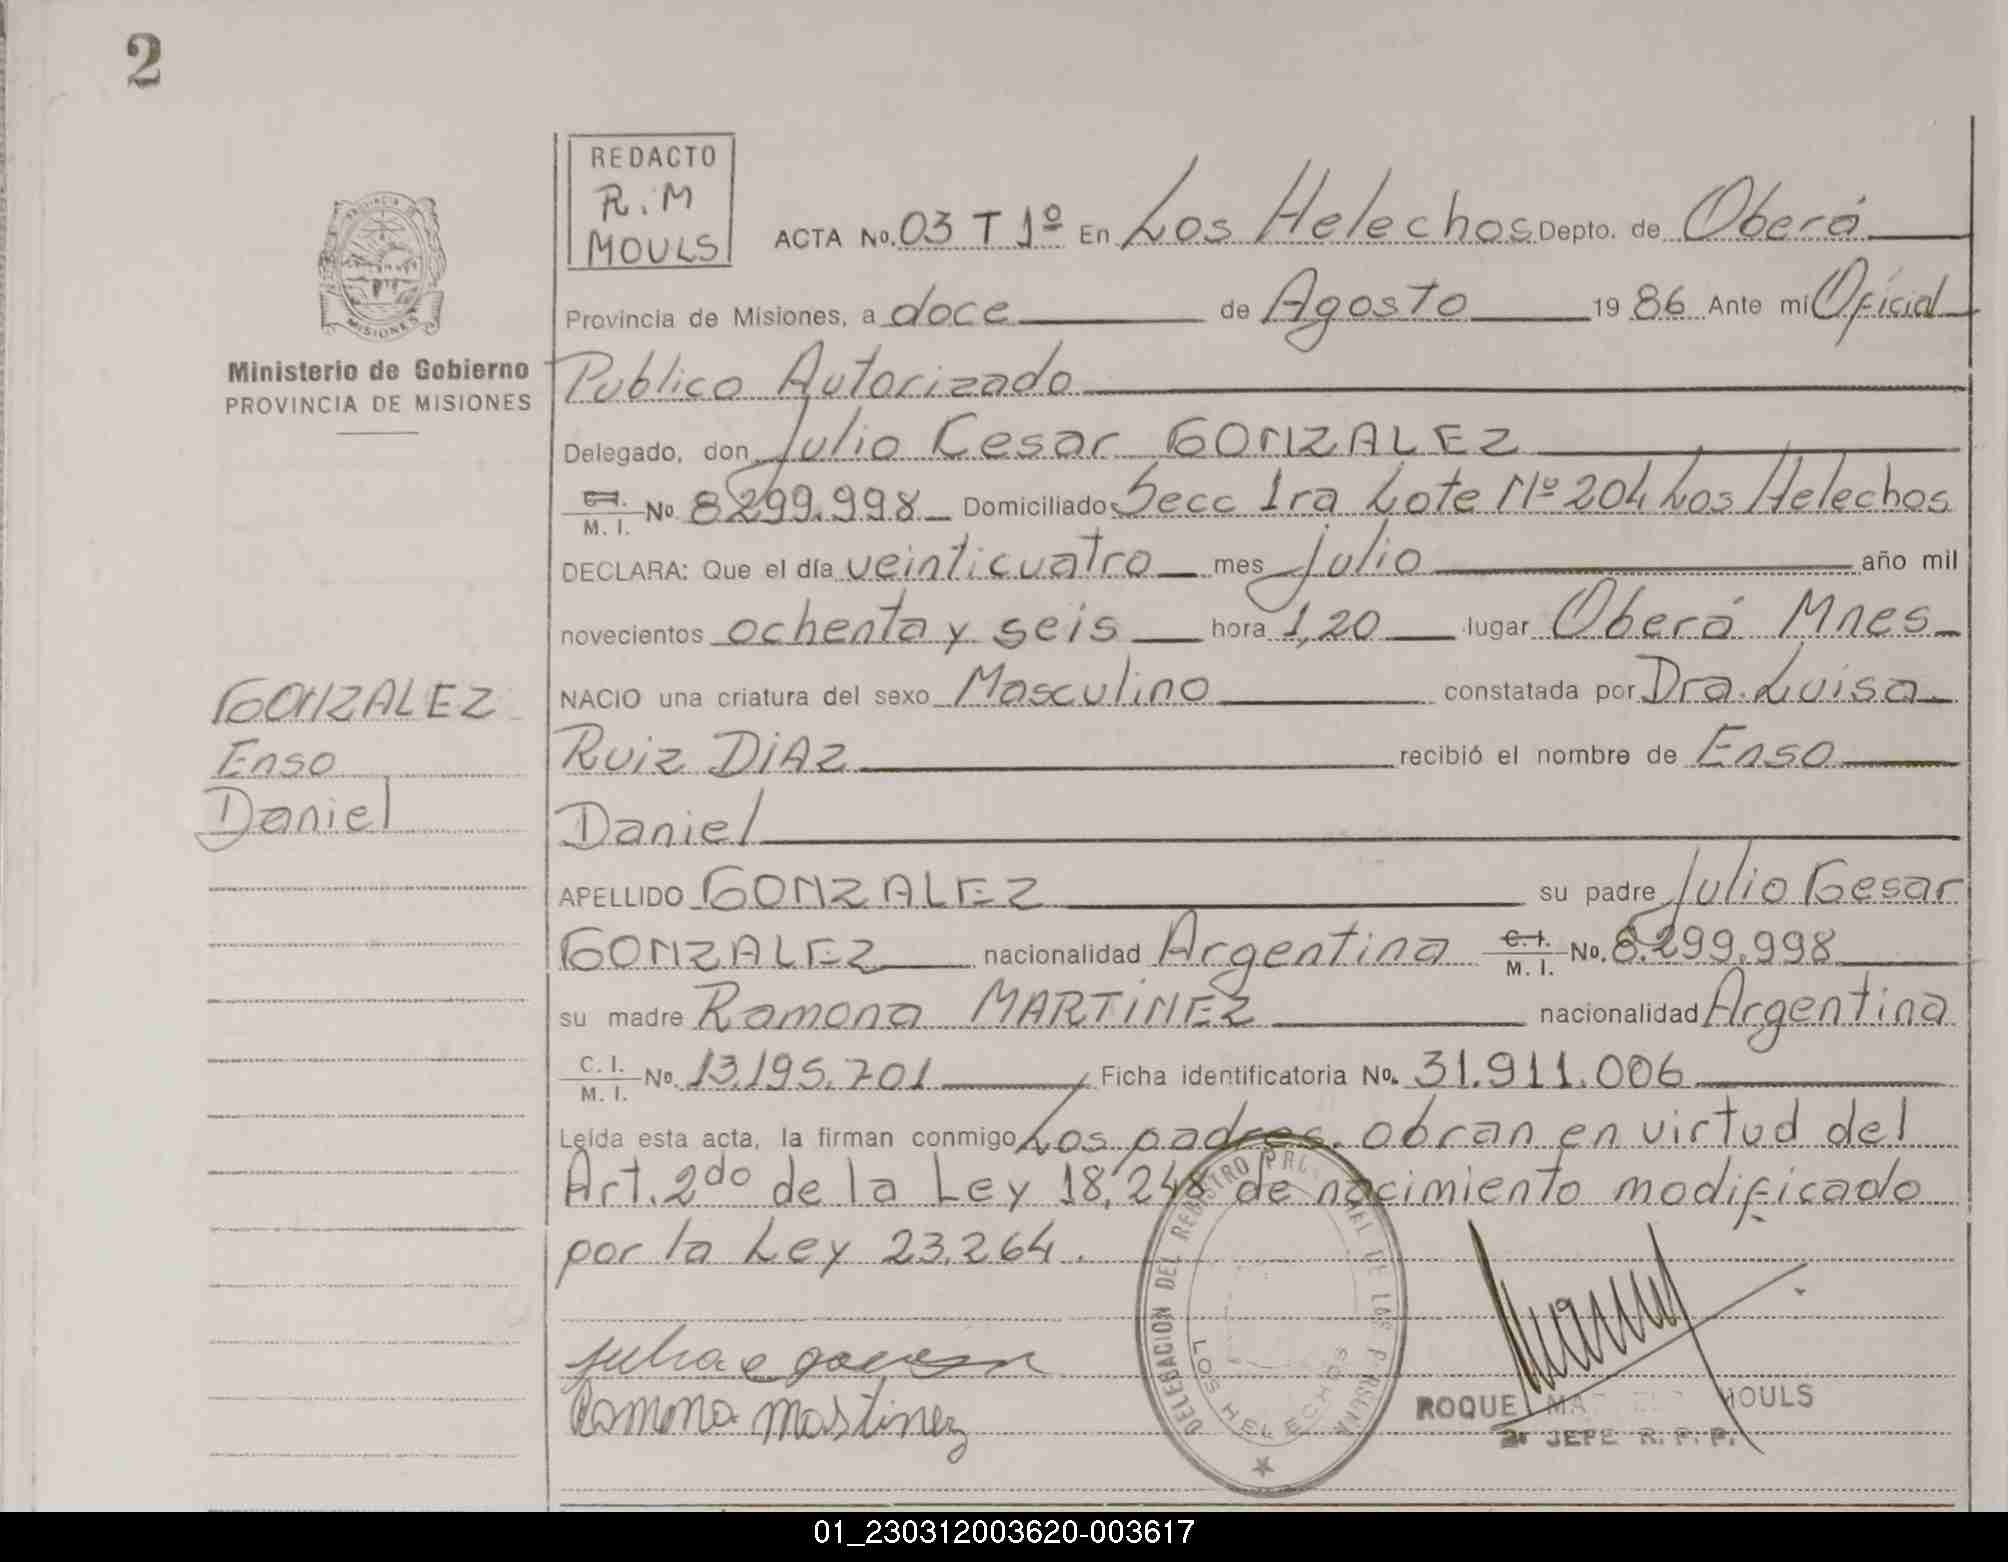 2
REDACTO
R.M
MOULS
ACTA No. 03 T 1º En Los Helechos Depto. de Oberá
Provincia de Misiones, a doce de Agosto 19 86 Ante mi Oficial
Ministerio de Gobierno
PROVINCIA DE MISIONES
Publico Autorizado
Delegado, don Julio Cesar GONZALEZ
C.I. M. I. No 8299.998 Domiciliado Secc 1ra Lote Nº 204 Los Helechos
DECLARA: Que el día veinticuatro mes julio año mil
novecientos ochenta y seis hora 1,20 lugar Oberá Mnes
GONZALEZ
Enso
Daniel
NACIO una criatura del sexo Masculino constatada por Dra. Luisa
Ruiz DiAZ recibió el nombre de Enso
Daniel
APELLIDO GONZALEZ su padre Julio Cesar
GONZALEZ nacionalidad Argentina C.I. M. I. No. 8.299.998
su madre Ramona MARTiNEZ nacionalidad Argentina
C. I. M. I. No. 13.195.701 Ficha identificatoria No. 31.911.006
Leída esta acta, la firman conmigo Los padres. obran en virtud del
Art. 2do de la Ley 18,248 de nacimiento modificado
por la Ley 23.264.
Ramona Mastinez
DELEGACION DEL REGISTRO DE LAS PERSONAS
LOS HELECHOS
MISIONES
ROQUE MOULS
2º JEFE R. P. P.
01_230312003620-003617